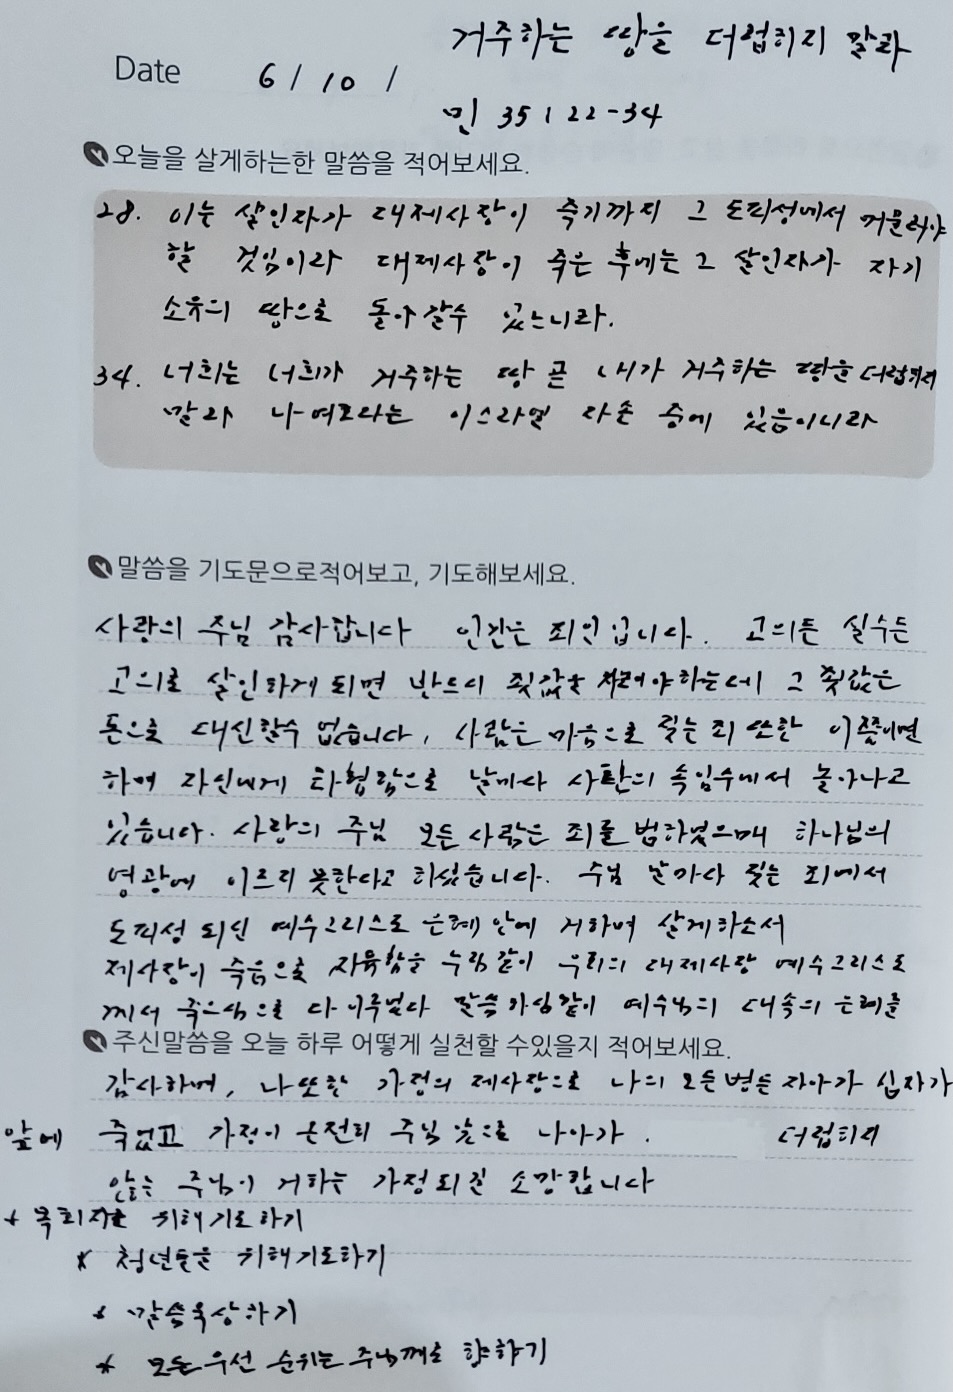 거주하는 땅을 더럽히지 말라
Date 6 / 10 /
민 35 : 22-34
오늘을 살게하는한 말씀을 적어보세요.
28. 이는 살인자가 대제사장이 죽기까지 그 도피성에서 머물러야
할 것임이라 대제사장이 죽은 후에는 그 살인자가 자기
소유의 땅으로 돌아갈수 있느니라.
34. 너희는 너희가 거주하는 땅 곧 내가 거주하는 땅을 더럽히지
말라 나 여호와는 이스라엘 자손 중에 있음이니라
말씀을 기도문으로적어보고, 기도해보세요.
사랑의 주님 감사합니다 인간은 죄인입니다. 고의든 실수든
고의로 살인하게 되면 반드시 죗값을 치러야하는데 그 죗값은
돈으로 대신할수 없습니다. 사람은 마음으로 짓는 죄 또한 이쯤이면
하여 자신에게 타협함으로 날마다 사탄의 속임수에서 놀아나고
있습니다. 사랑의 주님 모든 사람은 죄를 범하였으매 하나님의
영광에 이르지 못한다고 하셨습니다. 주님 날마다 짓는 죄에서
도피성 되신 예수그리스도 은혜 안에 거하여 살게하소서
제사장이 죽음으로 자유함을 누림같이 우리의 대제사장 예수그리스도
께서 죽으심으로 다 이루었다 말씀하심같이 예수님의 대속의 은혜를
주신말씀을 오늘 하루 어떻게 실천할 수있을지 적어보세요.
감사하며, 나 또한 가정의 제사장으로 나의 모든 병든 자아가 십자가
앞에 죽었고 가정이 온전히 주님 앞으로 나아가. 더럽히지
않는 주님이 거하는 가정되길 소망합니다
* 목회자를 위해 기도하기
* 청년들을 위해 기도하기
* 말씀묵상하기
* 모든 우선 순위는 주님께로 향하기